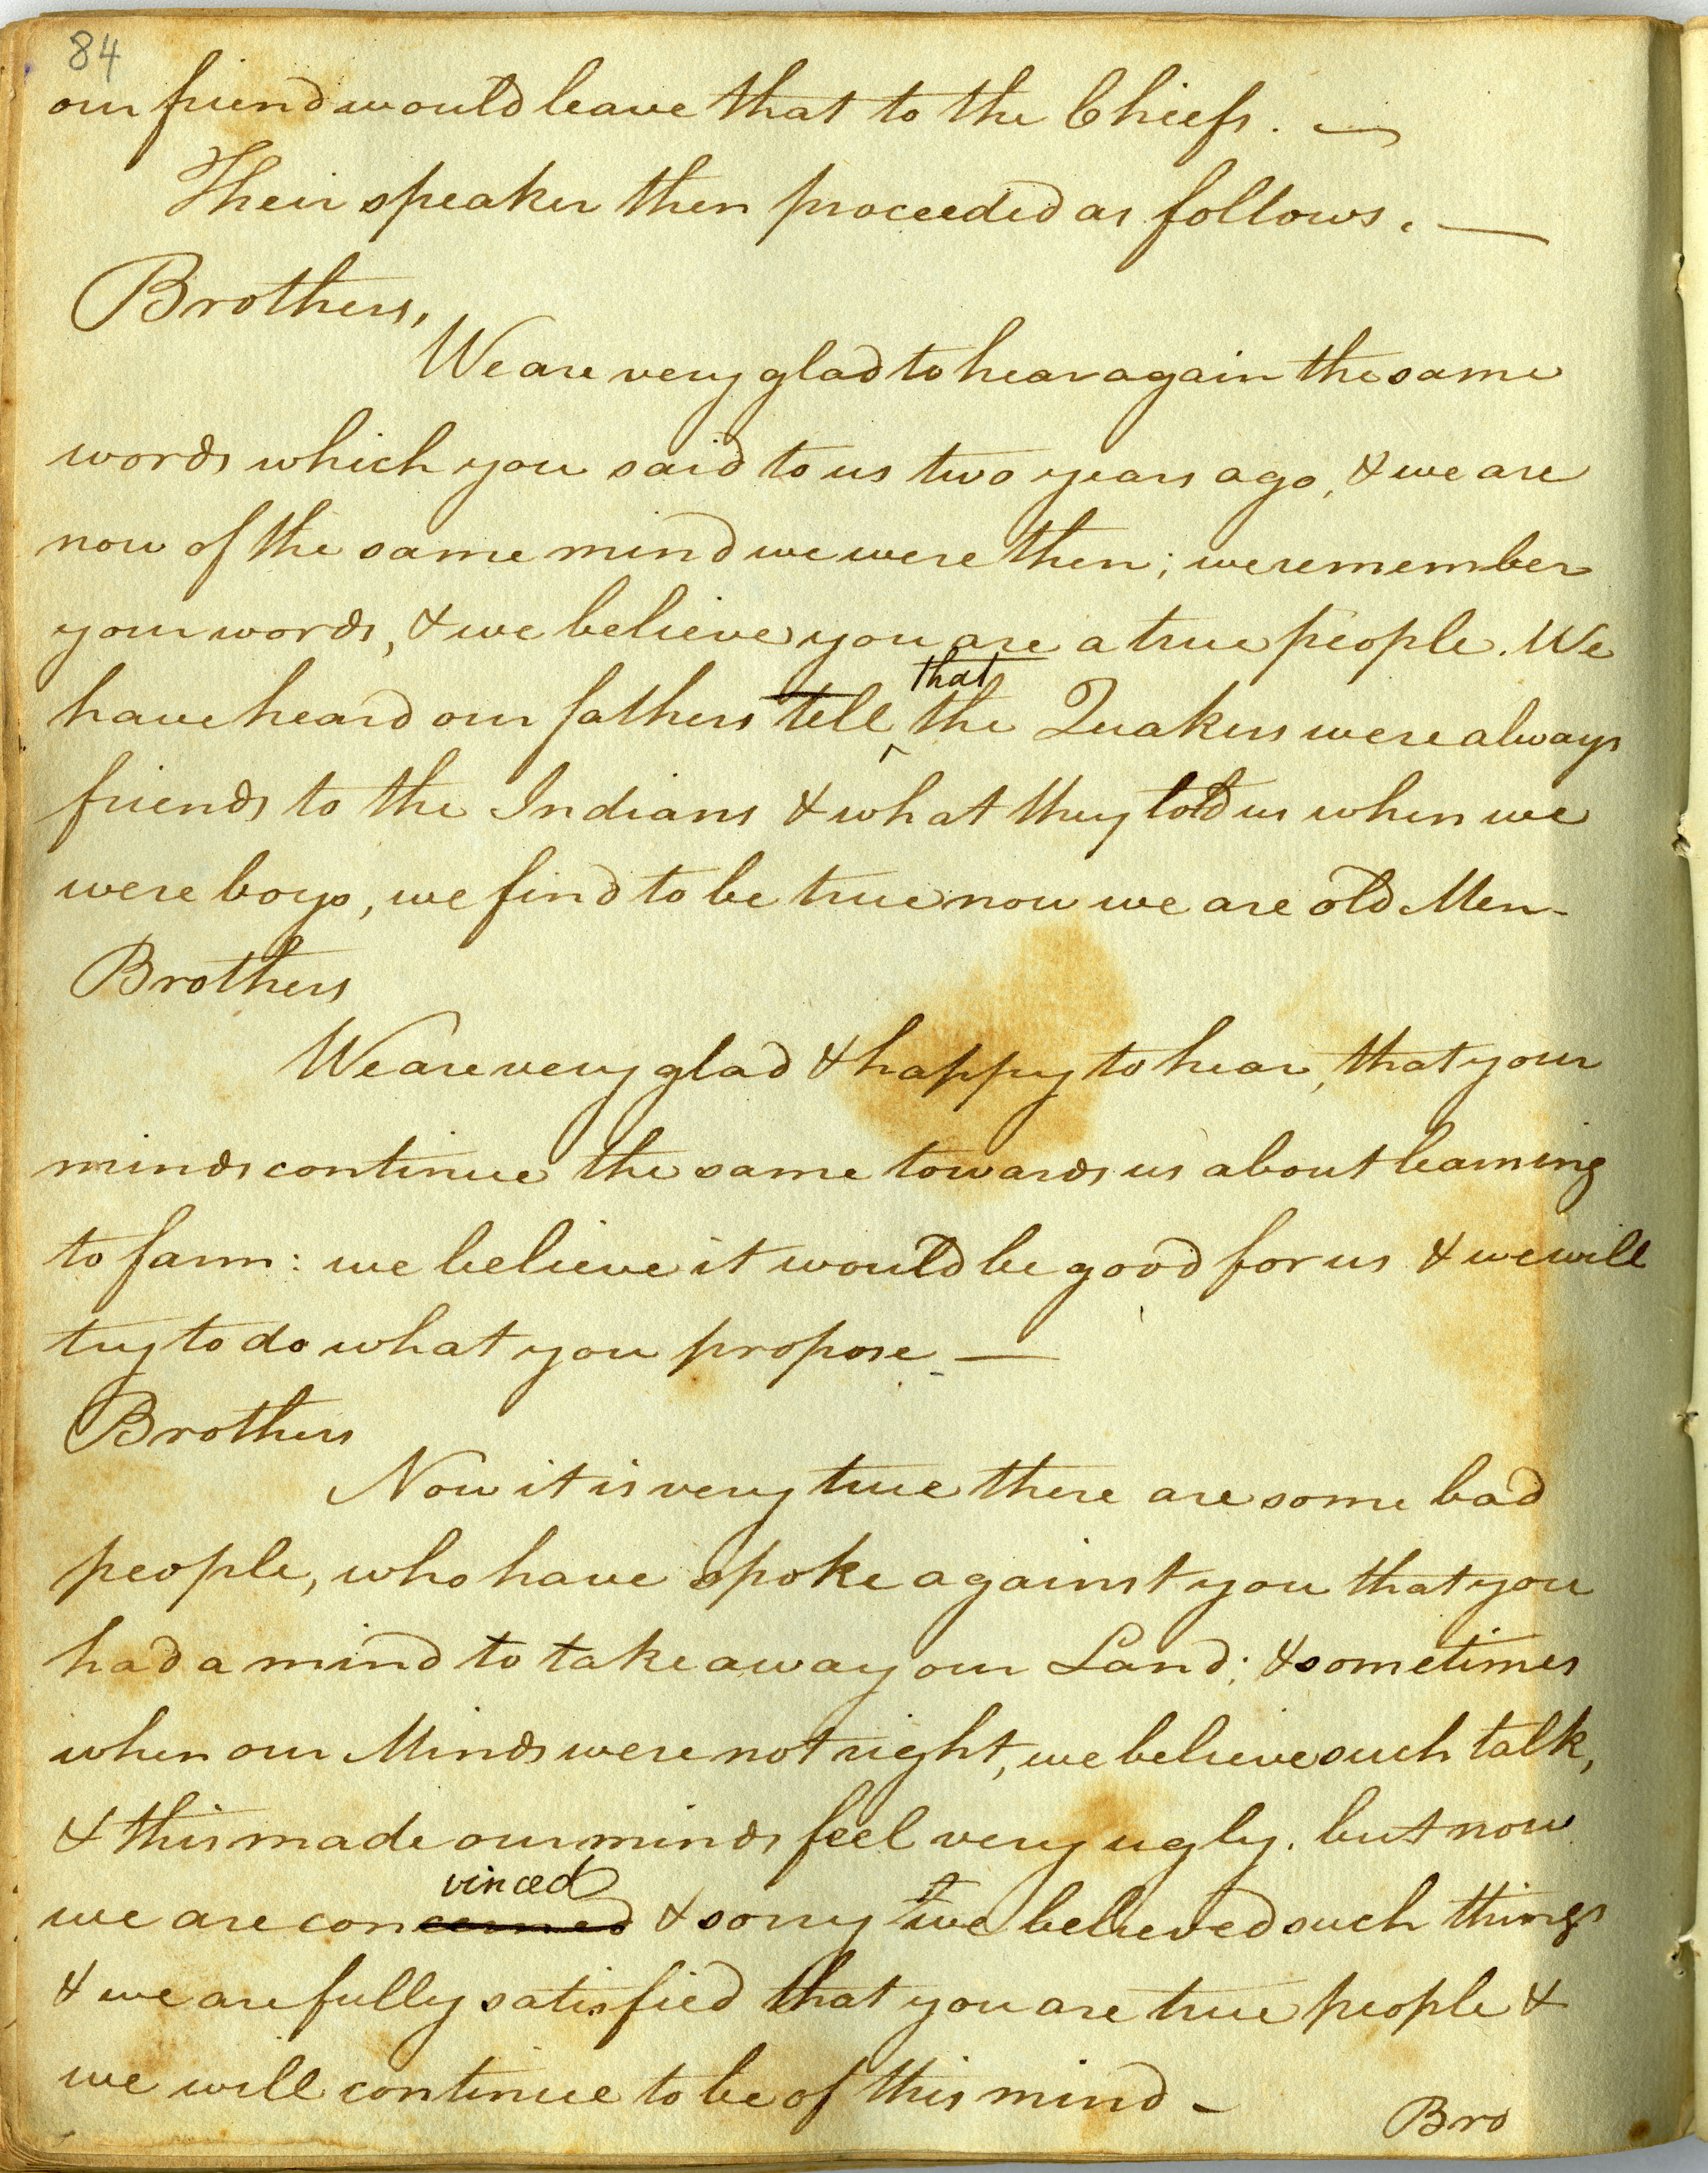 84
our friend would leave that to the Chiefs. —
Their speaker then proceeded as follows. —
Brothers,
We are very glad to hear again the same
words which you said to us two years ago, & we are
now of the same mind we were then; we remember
your words, & we believe you are a true people. We
that
have heard our fathers tell ^ the Quakers were always
friends to the Indians & what they told us when we
were boys, we find to be true now we are old Men -
Brothers
We are very glad & happy to hear, that your
minds continue the same towards us about learning
to farm: we believe it would be good for us & we will
try to do what you propose —
Brothers
Now it is very true there are some bad
people, who have spoke against you that you
had a mind to take away our Land; & sometimes
when our Minds were not right, we believe such talk,
& this made our minds feel very ugly. but now
vinced
we are concerned & sorry we believed such things
& we are fully satisfied that you are true people &
we will continue to be of this mind -
Bro